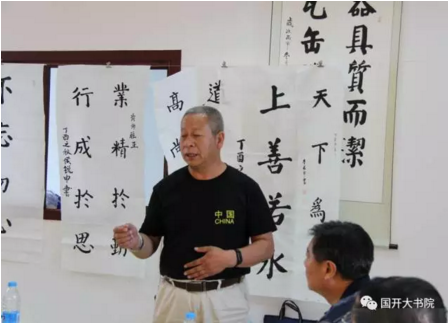 器具質而潔
瓦缶
天下為
上善若水
丁酉
道
高尚
業精於勤
行成於思
不忘初心
中国
CHINA
国开大书院